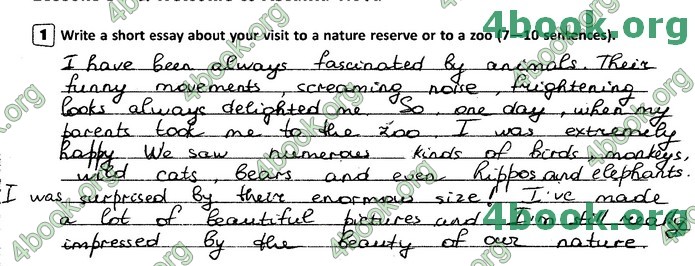 4book.org
1 Write a short essay about your visit to a nature reserve or to a zoo (7–10 sentences).
I have been always fascinated by animals. Their
funny movements, screaming noise, frightening
looks always delighted me. So, one day, when my
parents took me to the zoo I was extremely
happy. We saw numerous kinds of birds, monkeys,
wild cats, bears and even hippos and elephants.
I was surprised by their enormous size! I've made
a lot of beautiful pictures and I'm still really
impressed by the beauty of our nature.
4book.org
4book.org